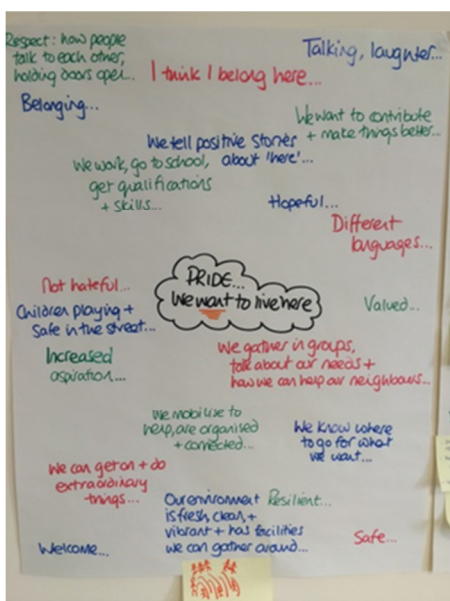 Respect: how people
talk to each other,
holding doors open...
Talking, laughter...
I think I belong here...
Belonging...
We want to contribute
+ make things better...
We tell positive stories
about 'here'...
We work, go to school,
get qualifications
+ skills...
Hopeful...
Different
languages...
PRIDE...
We want to live here
Not hateful...
Children playing +
safe in the street...
Valued...
Increased
aspiration...
We gather in groups,
talk about our needs +
how we can help our neighbours...
We mobilise to
help, are organised
+ connected...
We know where
to go for what
we want...
We can get on + do
extraordinary
things...
Our environment
is fresh, clean, +
vibrant + has facilities
we can gather around...
Resilient...
Safe...
Welcome...